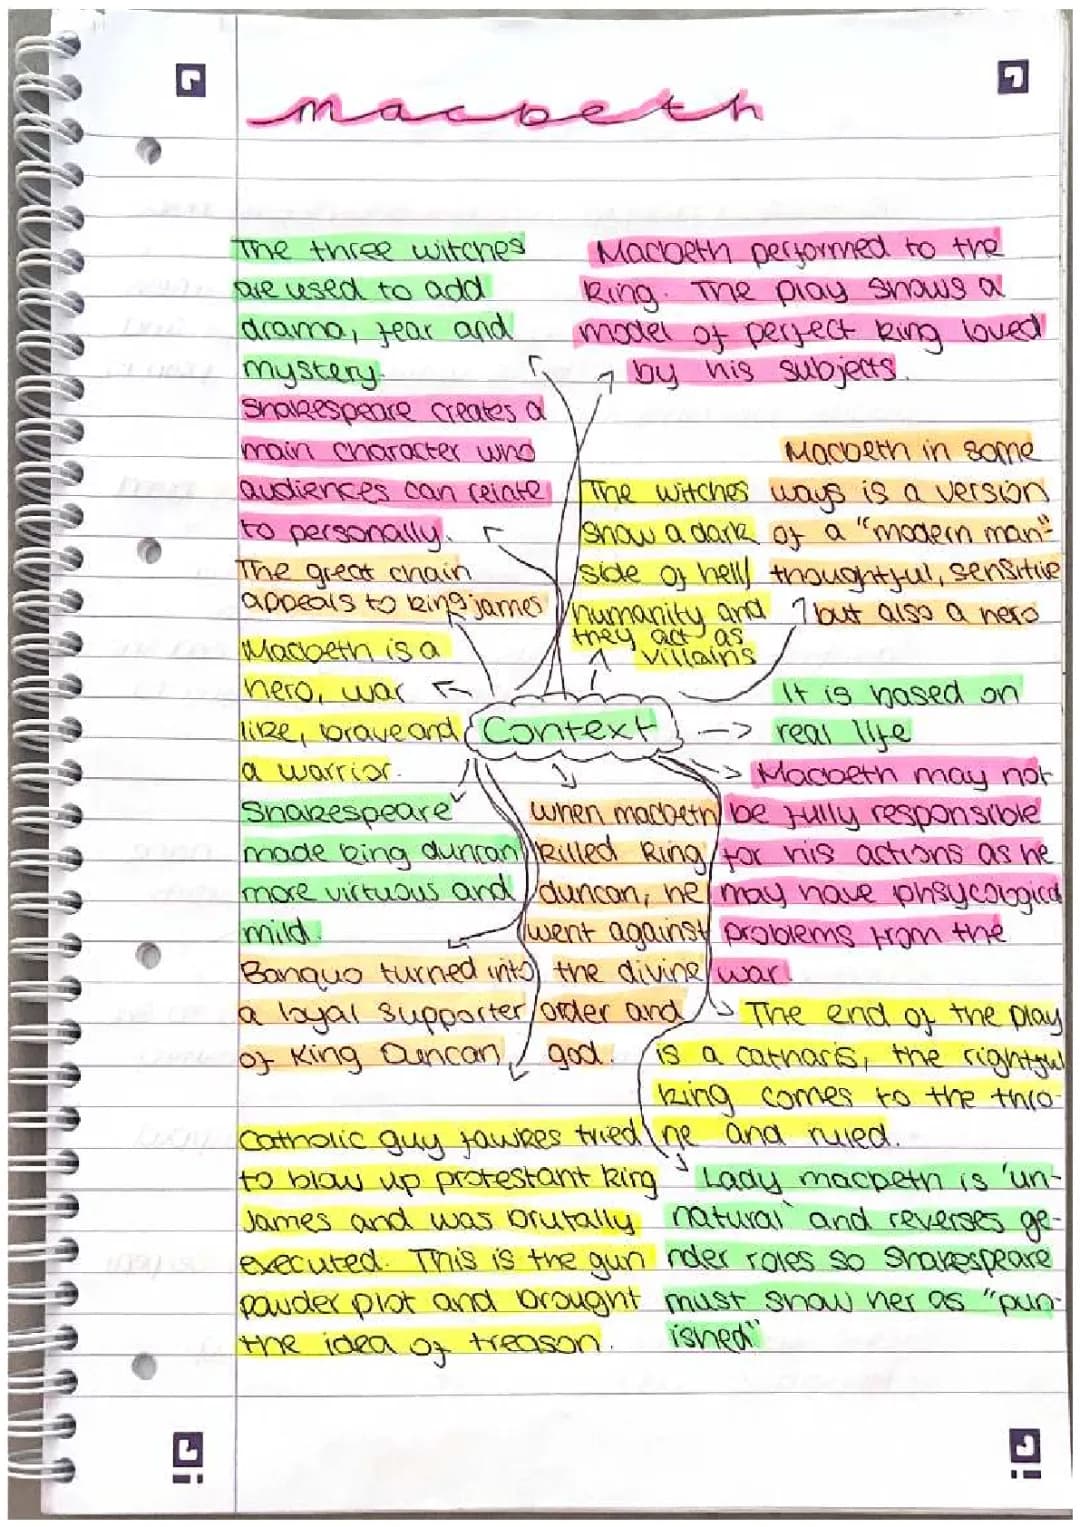 macbeth
The three witches
are used to add
drama, fear and
mystery.
Macbeth performed to the
king. The play shows a
model of perfect king loved
by his subjects.
Shakespeare creates a
main character who
audiences can relate
to personally.
Macbeth in some
ways is a version
of a "modern man"
thoughtful, sensitive
but also a hero
The witches
show a dark
side of hell/
humanity and
they act as
villains
The great chain
appeals to king james
Macbeth is a
hero, war
like, brave and
a warrior.
Context
It is based on
real life
Macbeth may not
be fully responsible
for his actions as he
may have phsycological
problems from the
war.
Shakespeare
made king duncan
more virtuous and
mild.
when macbeth
killed king
duncan, he
went against
the divine
order and
god.
Banquo turned into
a loyal supporter
of King Duncan
The end of the play
is a catharis, the rightful
king comes to the thro-
ne and ruled.
Catholic guy fawkes tried
to blow up protestant king
James and was brutally
executed. This is the gun
powder plot and brought
the idea of treason.
Lady macbeth is 'un-
natural' and reverses ge-
nder roles so Shakespeare
must show her as "pun-
ished"